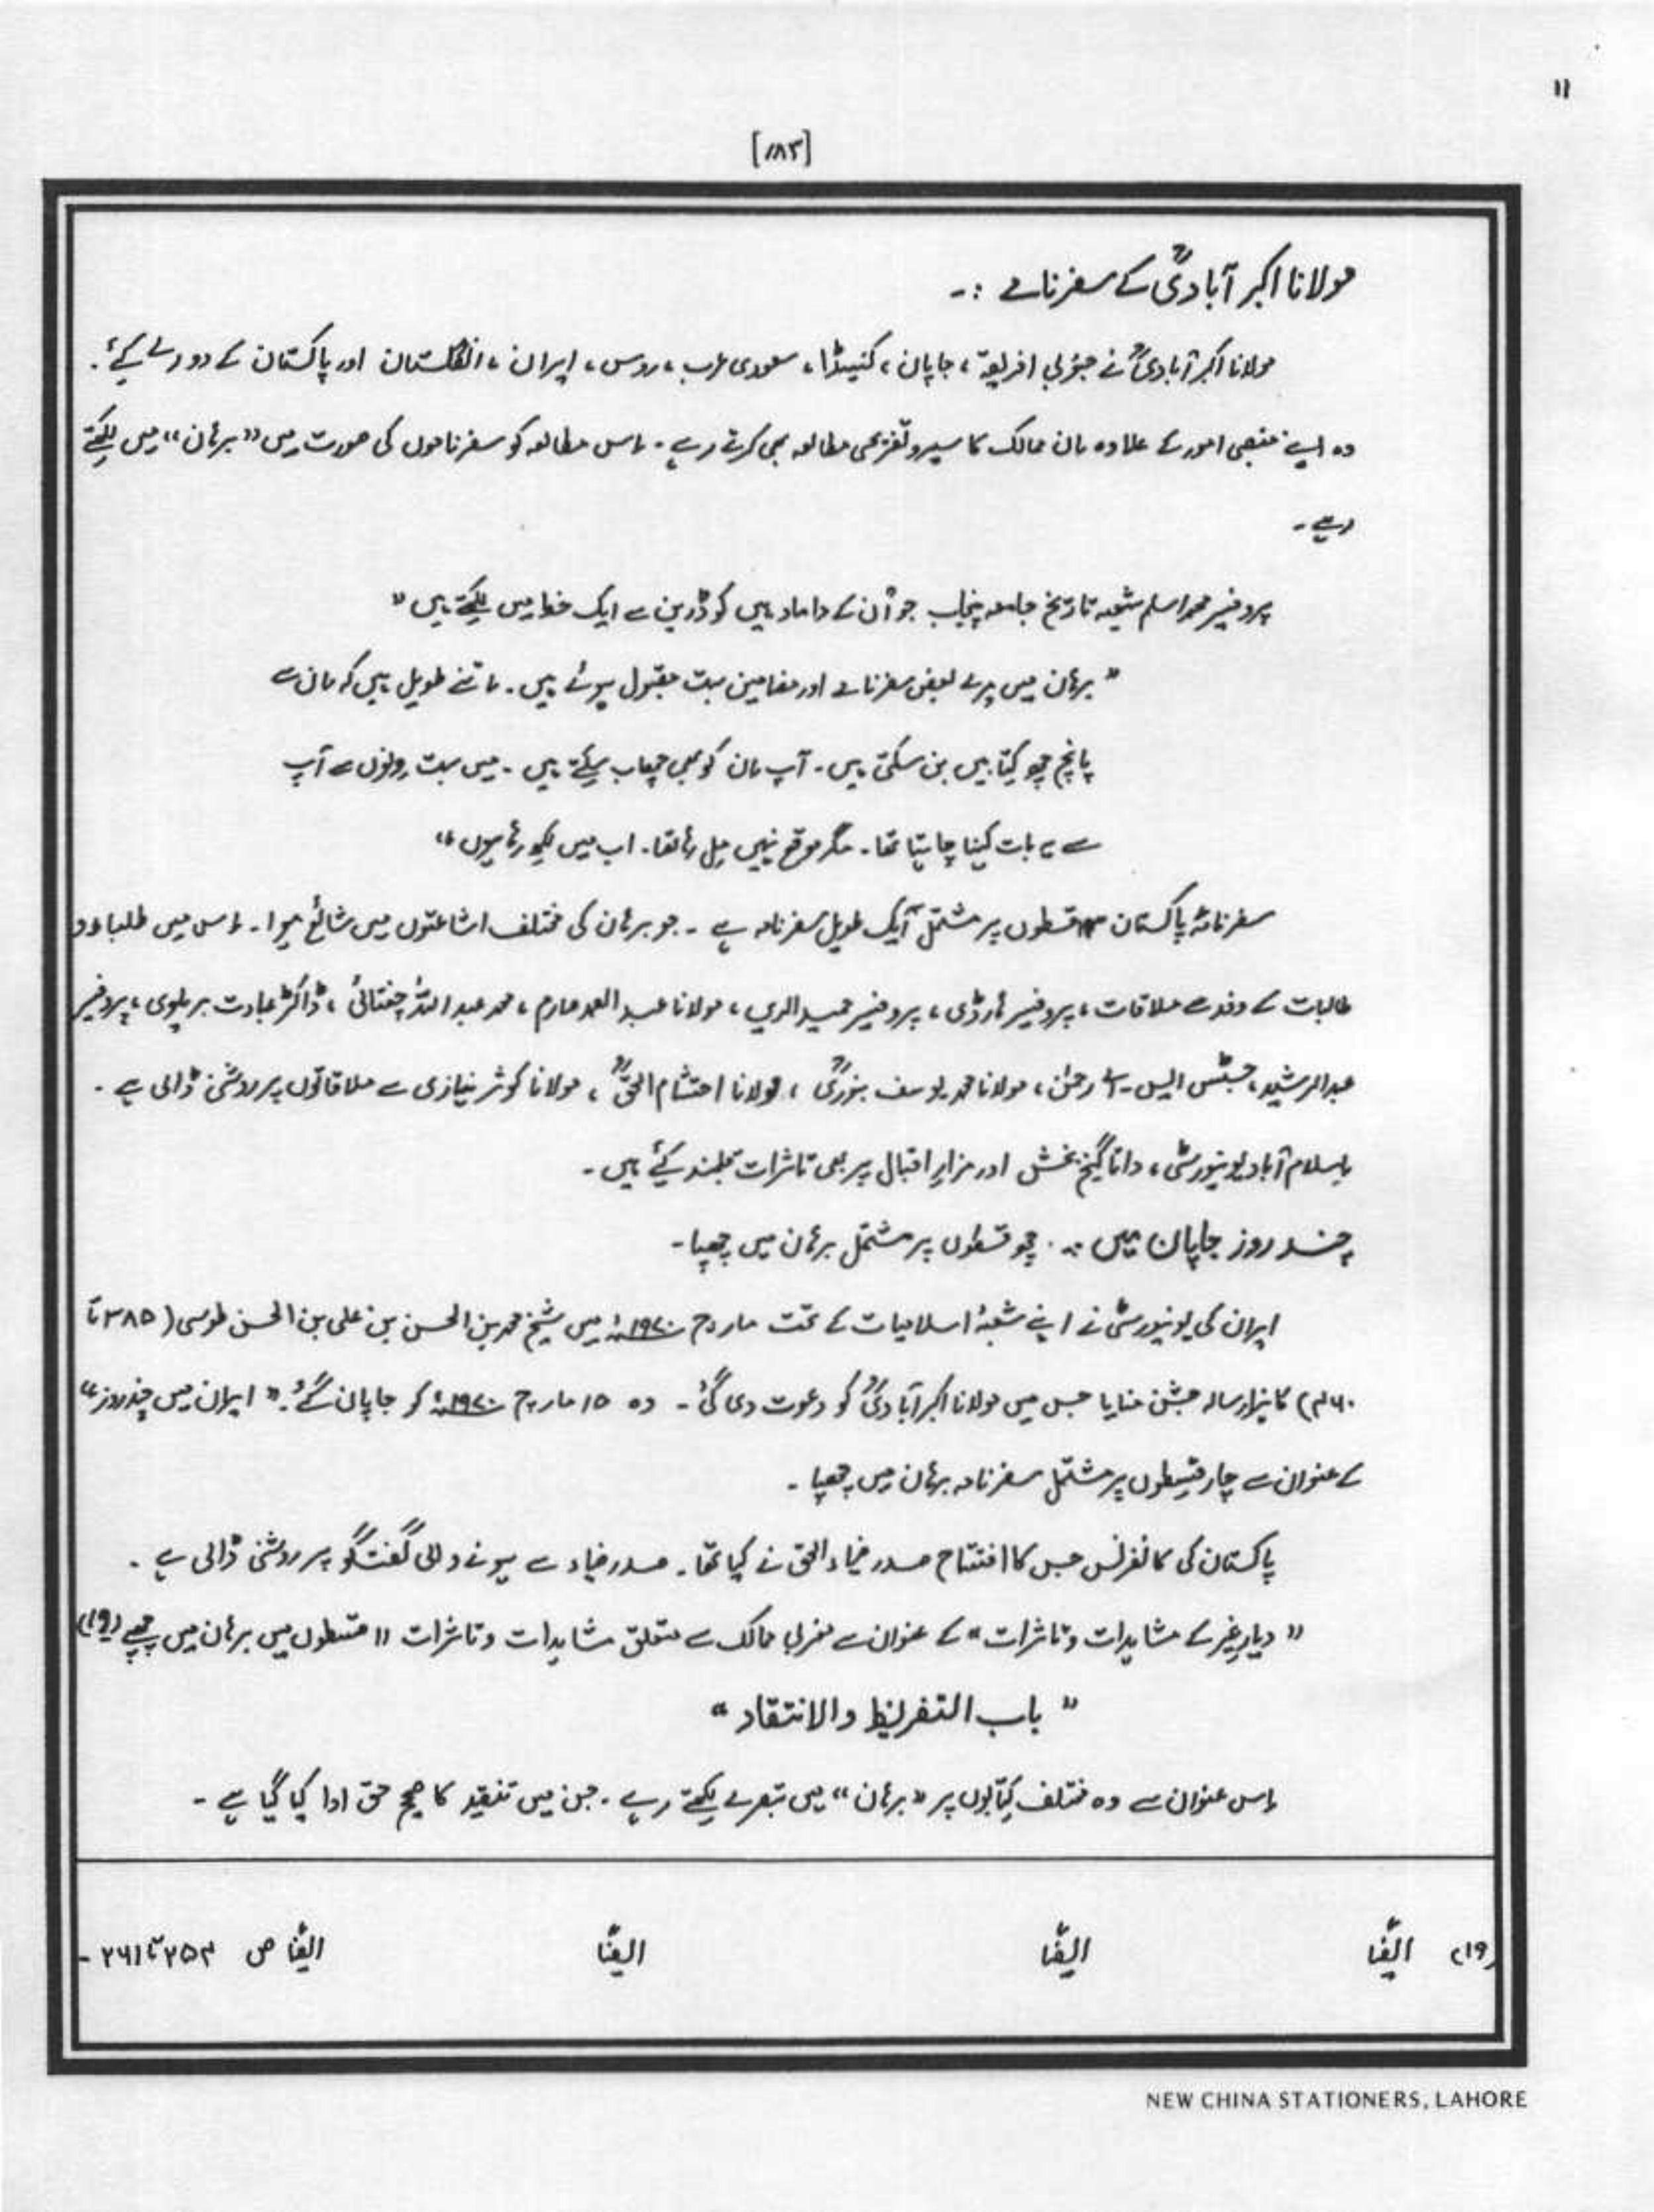 ۱۱
[۱۸۳]
مولانا اکبر آبادیؒ کے سفرنامے :-
مولانا اکبر آبادیؒ نے جنوبی افریقہ ، جاپان ، کنیڈا ، سعودی عرب ، روس ، ایران ، انگلستان اور پاکستان کے دورے کیے ۔
وہ اپنے منصبی امور کے علاوہ اِن ممالک کا سیرو تفریحی مطالعہ بھی کرتے رہے ۔ اِس مطالعہ کو سفرناموں کی صورت میں "برہان" میں لکھتے
رہے ۔
پروفیسر محمد اسلم شعبہ تاریخ جامعہ پنجاب جو اُن کے داماد ہیں کو ڈربن سے ایک خط میں لکھتے ہیں "
" برہان میں میرے بعض سفرنامے اور مضامین بہت مقبول ہوئے ہیں ۔ اِتنے طویل ہیں کہ اِن سے
پانچ چھ کتابیں بن سکتی ہیں ۔ آپ اِن کو بھی چھاپ سکتے ہیں ۔ میں بہت دنوں سے آپ
سے یہ بات کہنا چاہتا تھا ۔ مگر موقع نہیں مل رہا تھا ۔ اب میں لکھ رہا ہوں "
سفرنامۂ پاکستان قسطوں پر مشتمل ایک طویل سفرنامہ ہے ۔ جو برہان کی مختلف اشاعتوں میں شائع ہوا ۔ اِس میں طلباء و
طالبات کے وفد سے ملاقات ، پروفیسر ہارڈی ، پروفیسر حمید الدین ، مولانا عبد الصمد صارم ، محمد عبد اللہ چغتائی ، ڈاکٹر عبادت بریلوی ، پروفیسر
عبدالرشید ، جسٹس ایس ۔ اے رحمٰن ، مولانا محمد یوسف بنوریؒ ، مولانا احتشام الحقؒ ، مولانا کوثر نیازی سے ملاقاتوں پر روشنی ڈالی ہے ۔
اِسلام آباد یونیورسٹی ، داتا گنج بخش اور مزارِ اقبال پر بھی تاثرات قلمبند کیے ہیں ۔
چند روز جاپان میں :۔ چھ قسطوں پر مشتمل برہان میں چھپا ۔
ایران کی یونیورسٹی نے اپنے شعبۂ اسلامیات کے تحت مارچ ۱۹۷۰ء میں شیخ محمد بن الحسن بن علی بن الحسن طوسی ( ۳۸۵ تا
۴۶۰ھ ) کا ہزار سالہ جشن منایا جس میں مولانا اکبر آبادیؒ کو دعوت دی گئی ۔ وہ ۱۵ مارچ ۱۹۷۰ء کو جاپان گئے ۔ " ایران میں چند روز "
کے عنوان سے چار قسطوں پر مشتمل سفرنامہ برہان میں چھپا ۔
پاکستان کی کانفرنس جس کا افتتاح صدر ضیاء الحق نے کیا تھا ۔ صدر ضیاء سے ہونے والی گفتگو پر روشنی ڈالی ہے ۔
" دیارِ غیر کے مشاہدات و تاثرات " کے عنوان سے مغربی ممالک سے متعلق مشاہدات و تاثرات ۱۱ قسطوں میں برہان میں چھپے (۱۹)
" باب التفریظ والانتقاد "
اِس عنوان سے وہ مختلف کتابوں پر " برہان " میں تبصرے لکھتے رہے ۔ جن میں تنقید کا صحیح حق ادا کیا گیا ہے ۔
(۱۹) ایضًا ایضًا ایضًا ایضًا ص ۲۵۴ تا ۲۶۱ ۔
NEW CHINA STATIONERS, LAHORE